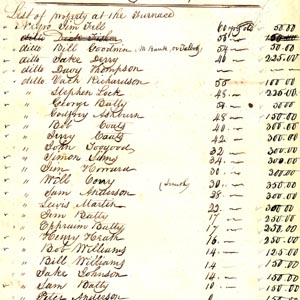 List of property at the Furnace
" Negro Jim Fill 60 — 50.00
ditto Dick 55
ditto Bill Goodwin 54 — 50.00
ditto Jake Derry 40 — 225.00
ditto Davy Thompson —
ditto Wath Richardson 50 —
" Stephen Lock 45 — 225.00
" George Batty 54 — 50.00
" Godfrey Ashburn 48 — 150.00
" Bob Coats 40 — 300.00
" Jerry Coats 42 — 300.00
" John Toogood 32 — 300.00
" Simon Sims 34 — 300.00
" Jim Howard 30 —
" Will Cony (Smith) 30 — 350.00
" Sam Anderson 28 — 300.00
" Lewis Martin 22 — 300.00
" Jim Batty 17 — 250.00
" Ephraim Batty 17 — 250.00
" Henry Heath 16 — 250.00
" Bob Williams 14 — 150.00
" Bill Williams 14 — 150.00
" Jake Johnson 14 — 150.00
" Sam Batty 10 —
" Peter Anderson